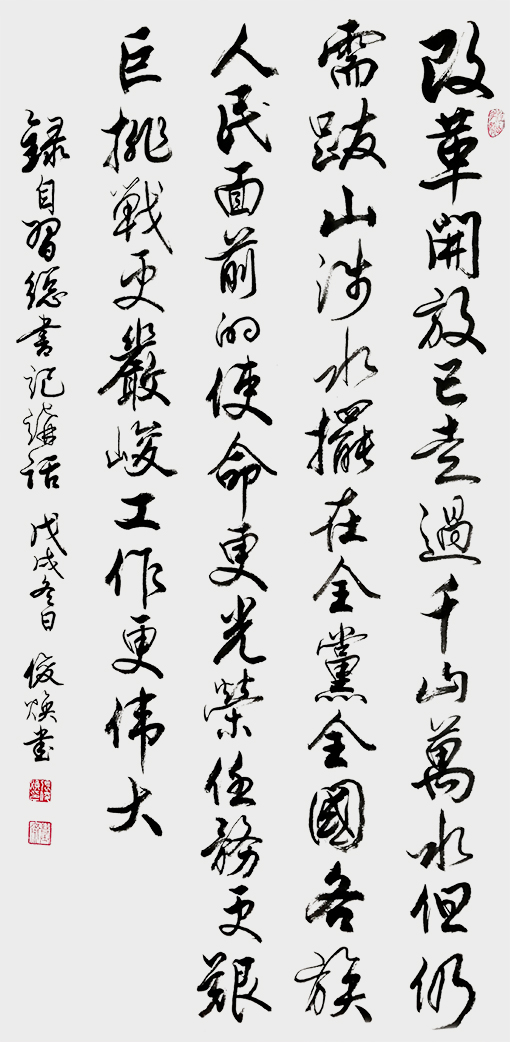 改革開放已走過千山萬水但仍
需跋山涉水擺在全黨全國各族
人民面前的使命更光榮任務更艱
巨挑戰更嚴峻工作更伟大
録自習總書記講話 戊戌冬日 俊煥書